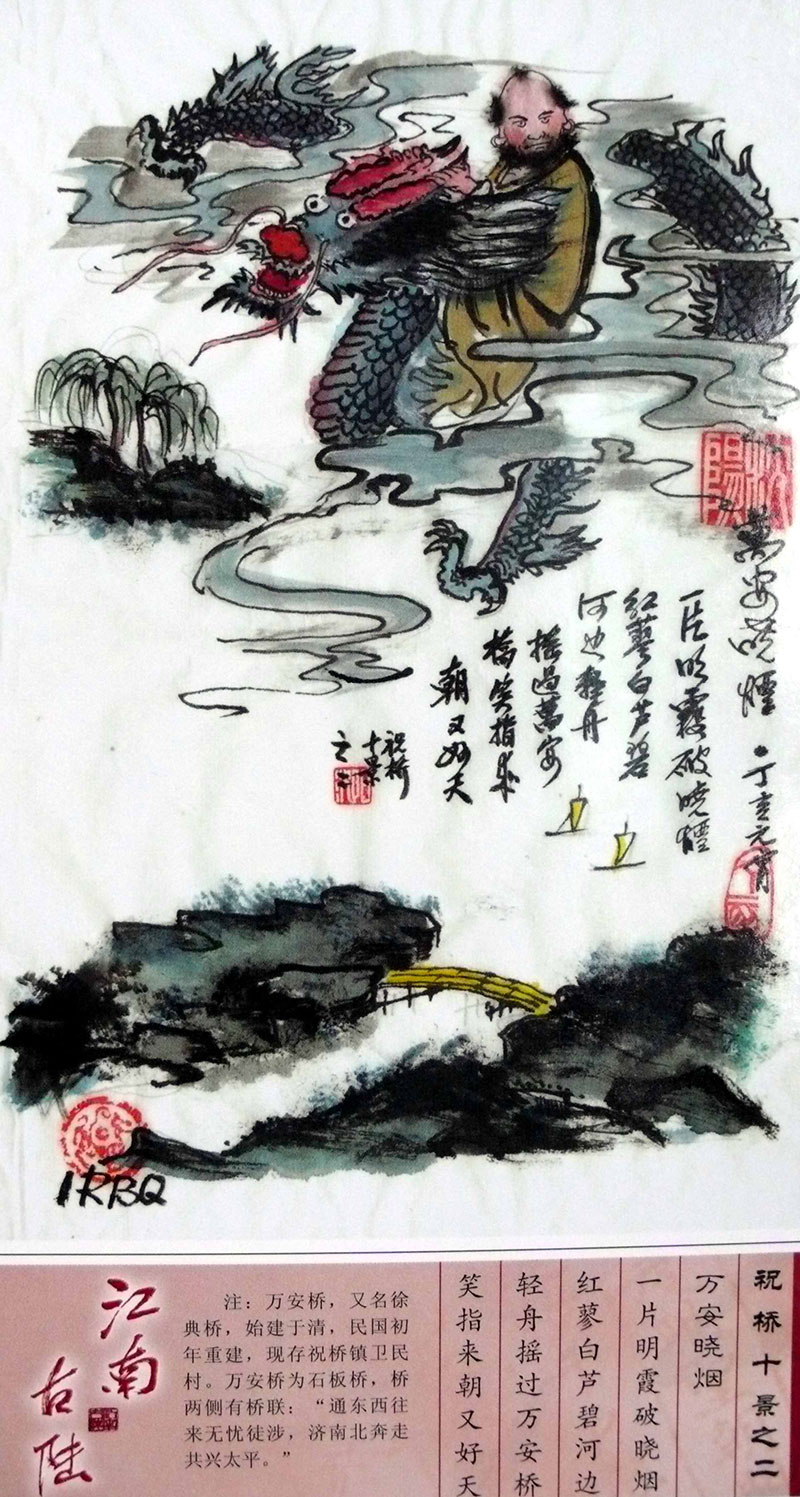 萬安晓煙 · 丁亥元宵
一片明霞破晓煙
红蓼白芦碧
河边轻舟
摇過萬安
橋笑指来
朝又好天
祝桥
十景
之二
1RBQ
祝桥十景之二
万安晓烟
一片明霞破晓烟
红蓼白芦碧河边
轻舟摇过万安桥
笑指来朝又好天
注：万安桥，又名徐
典桥，始建于清，民国初
年重建，现存祝桥镇卫民
村。万安桥为石板桥，桥
两侧有桥联：“通东西往
来无忧徒涉，济南北奔走
共兴太平。”
江南
古陆